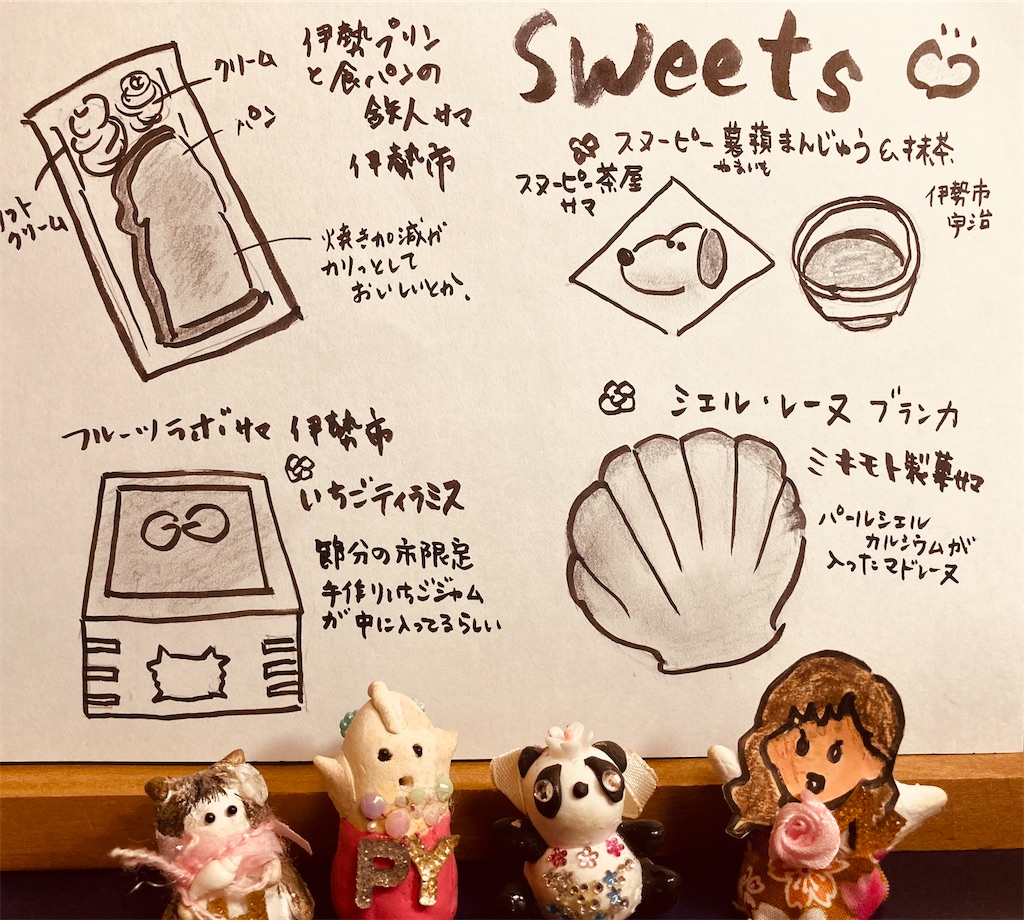 Sweets
伊勢プリン
と食パンの
鉄人サマ
伊勢市
クリーム
パン
ソフト
クリーム
焼き加減が
カリっとして
おいしいとか。
スヌーピー薯蕷まんじゅう&抹茶
やまいも
スヌーピー茶屋
サマ
伊勢市
宇治
フルーツラボサマ 伊勢市
いちごティラミス
節分の市限定
手作りいちごジャム
が中に入ってるらしい
シエル・レーヌ ブランカ
ミキモト製菓サマ
パールシェル
カルシウムが
入ったマドレーヌ
PY